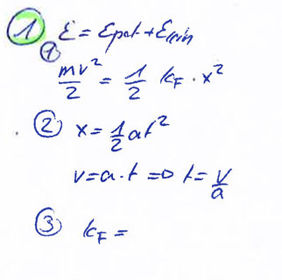 1 E = Epot + Ekin
① mv²/2 = 1/2 k_F · x²
② x = 1/2 at²
v = a · t => t = v/a
③ k_F =